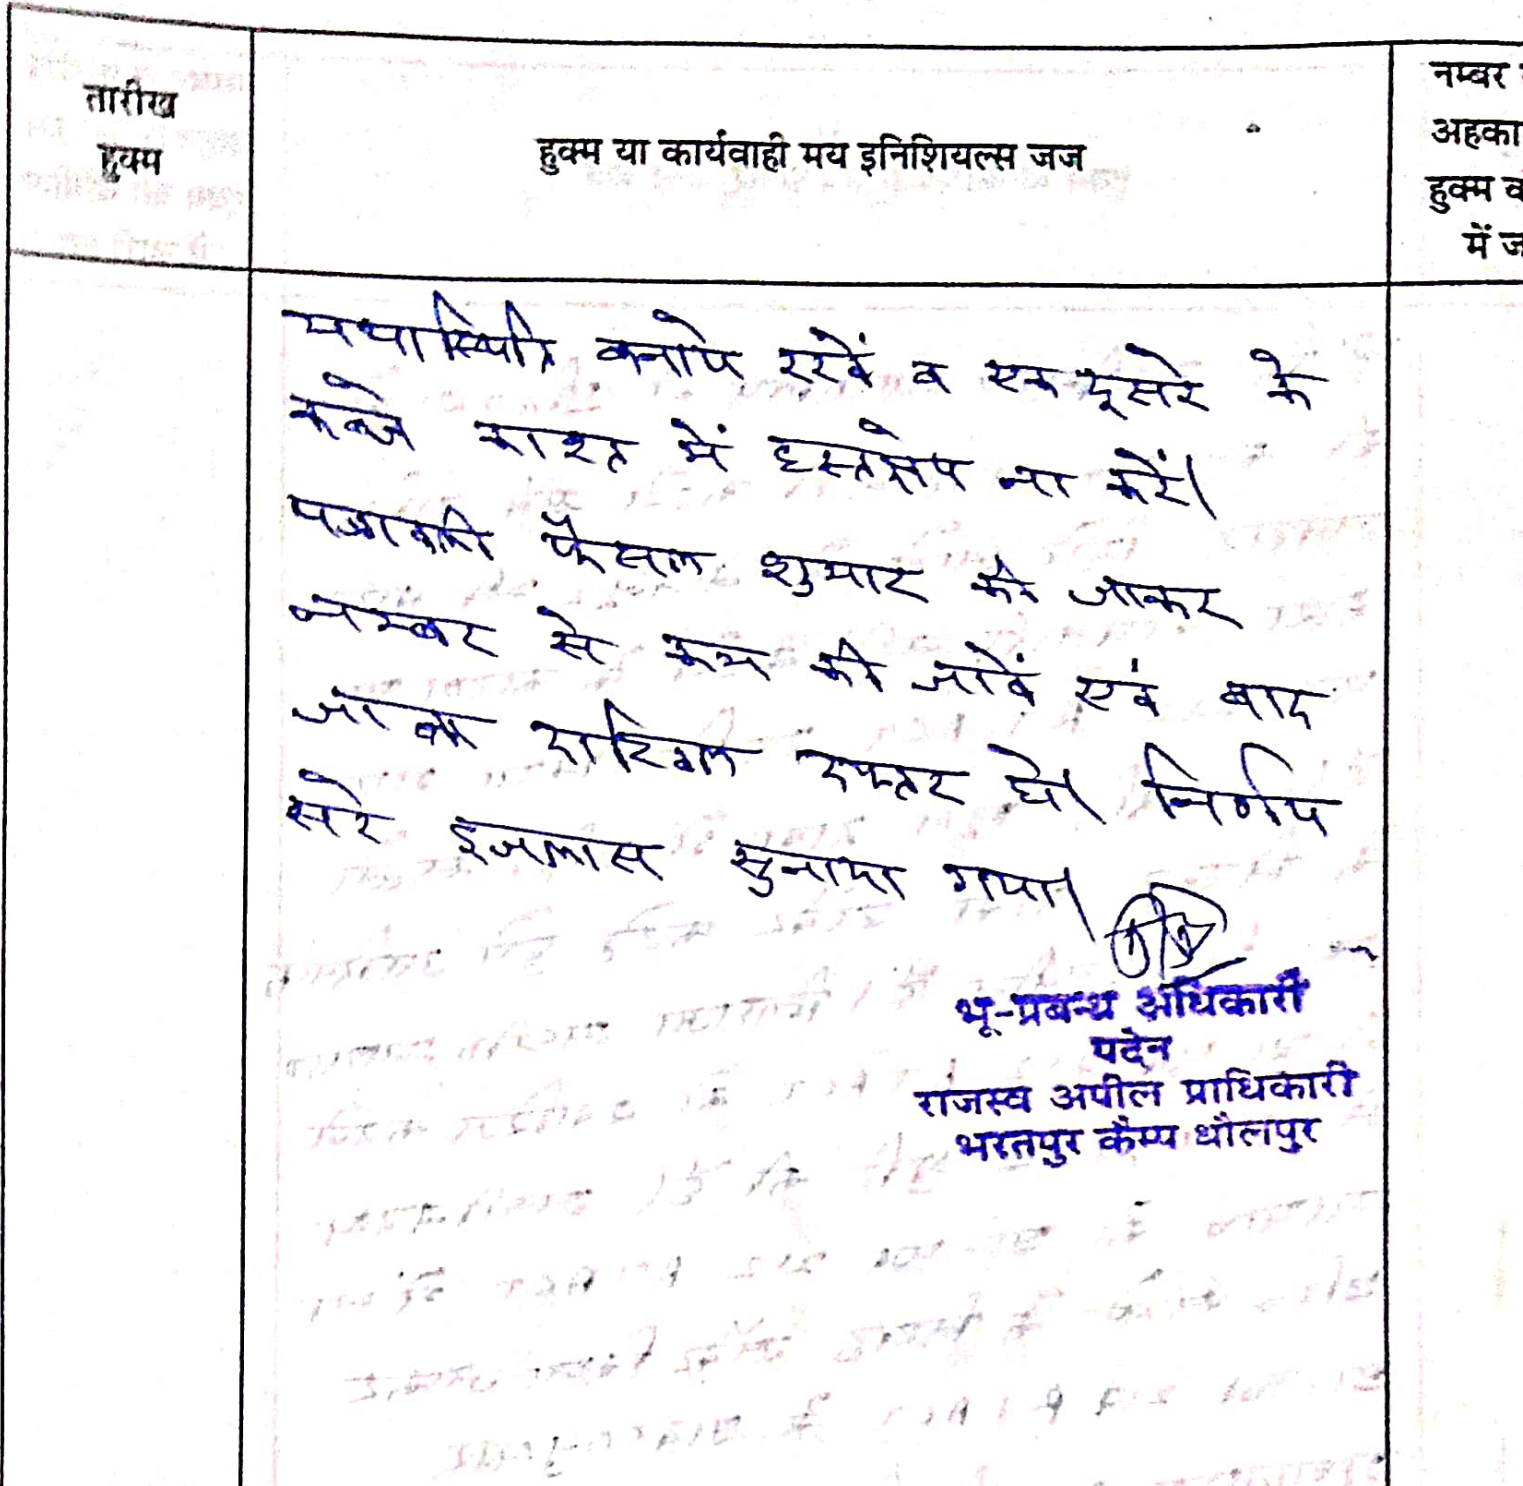 तारीख
हुक्म
हुक्म या कार्यवाही मय इनिशियल्स जज
नम्बर
अहका
हुक्म
में ज
यथास्थिति बनाये रखें व एक दूसरे के
कब्जे काश्त में हस्तक्षेप ना करें।
पत्रावली फैसल शुमार की जाकर
नम्बर से कम की जावें एवं बाद
जाब्ता दाखिल दफ्तर हो। निर्णय
सरे इजलास सुनाया गया।
भू-प्रबन्ध अधिकारी
पदेन
राजस्व अपील प्राधिकारी
भरतपुर कैम्प धौलपुर